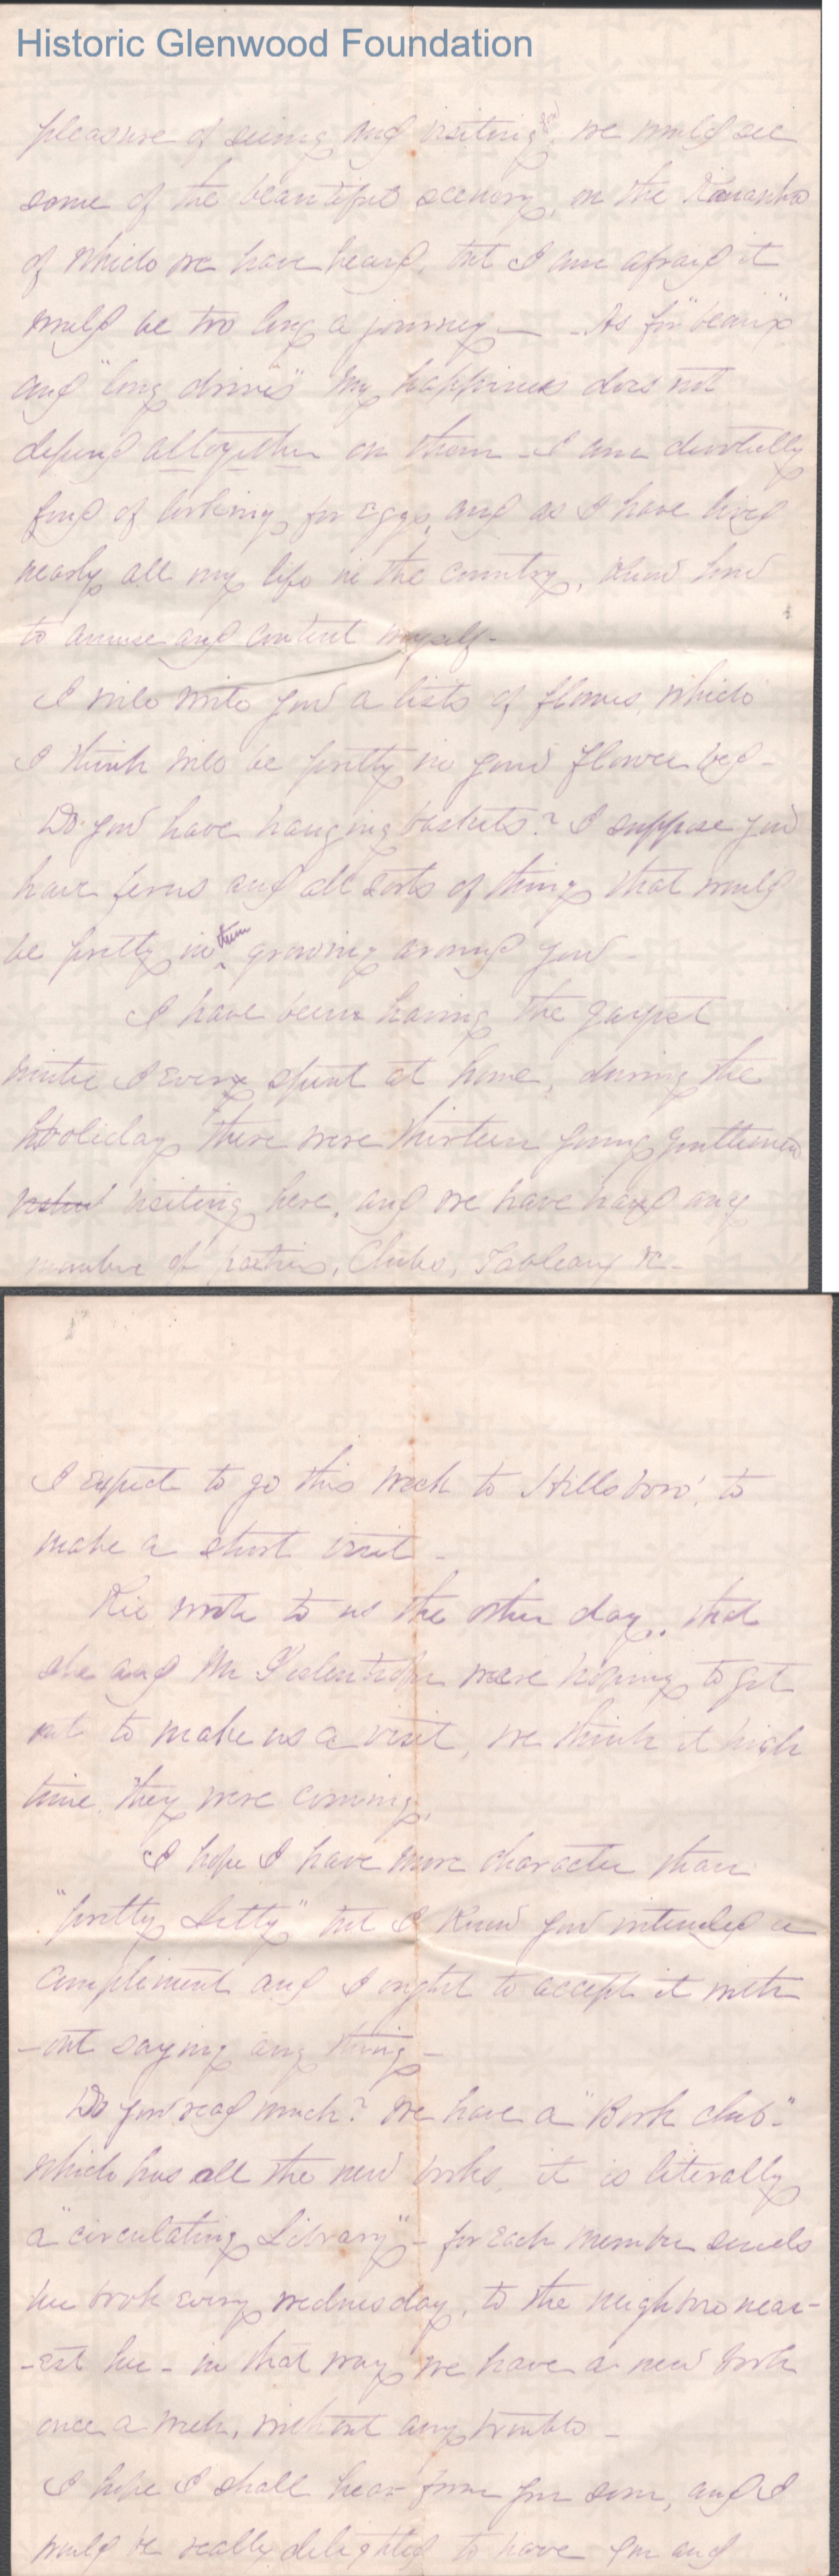 Historic Glenwood Foundation
pleasure of seeing and visiting you, we would see
some of the beautiful scenery, on the Kanawha
of which we have heard, but I am afraid it
would be too long a journey — As for "beaux"
and "long drives" my happiness does not
depend altogether on them - I am dreadfully
fond of looking for eggs, and as I have lived
nearly all my life in the country, know how
to amuse and content myself -
I will write you a lists of flowers, which
I think will be pretty in your flower bed -
Do you have hanging baskets? I suppose you
have ferns and all sorts of things that would
be pretty in them growing around you -
I have been having the gayest
winter I ever spent at home, during the
Holiday there were thirteen young gentlemen
visiting here, and we have had any
number of parties, Clubs, Tableaux &c -
I expect to go this week to Hillsboro', to
make a short visit -
wrote to us the other day, that
she and Mr were hoping to get
out to make us a visit, we think it high
time they were coming,
I hope I have more character than
"pretty Letty" but I know you intended a
compliment and I ought to accept it with
-out saying any thing -
Do you read much? We have a "Book club" -
which has all the new books, it is literally
a "circulating Library" - for each member sends
her book every wednesday, to the neighbor near-
-est her - in that way we have a new book
once a week, without any trouble -
I hope I shall hear from you soon, and I
would be really delighted to have you and